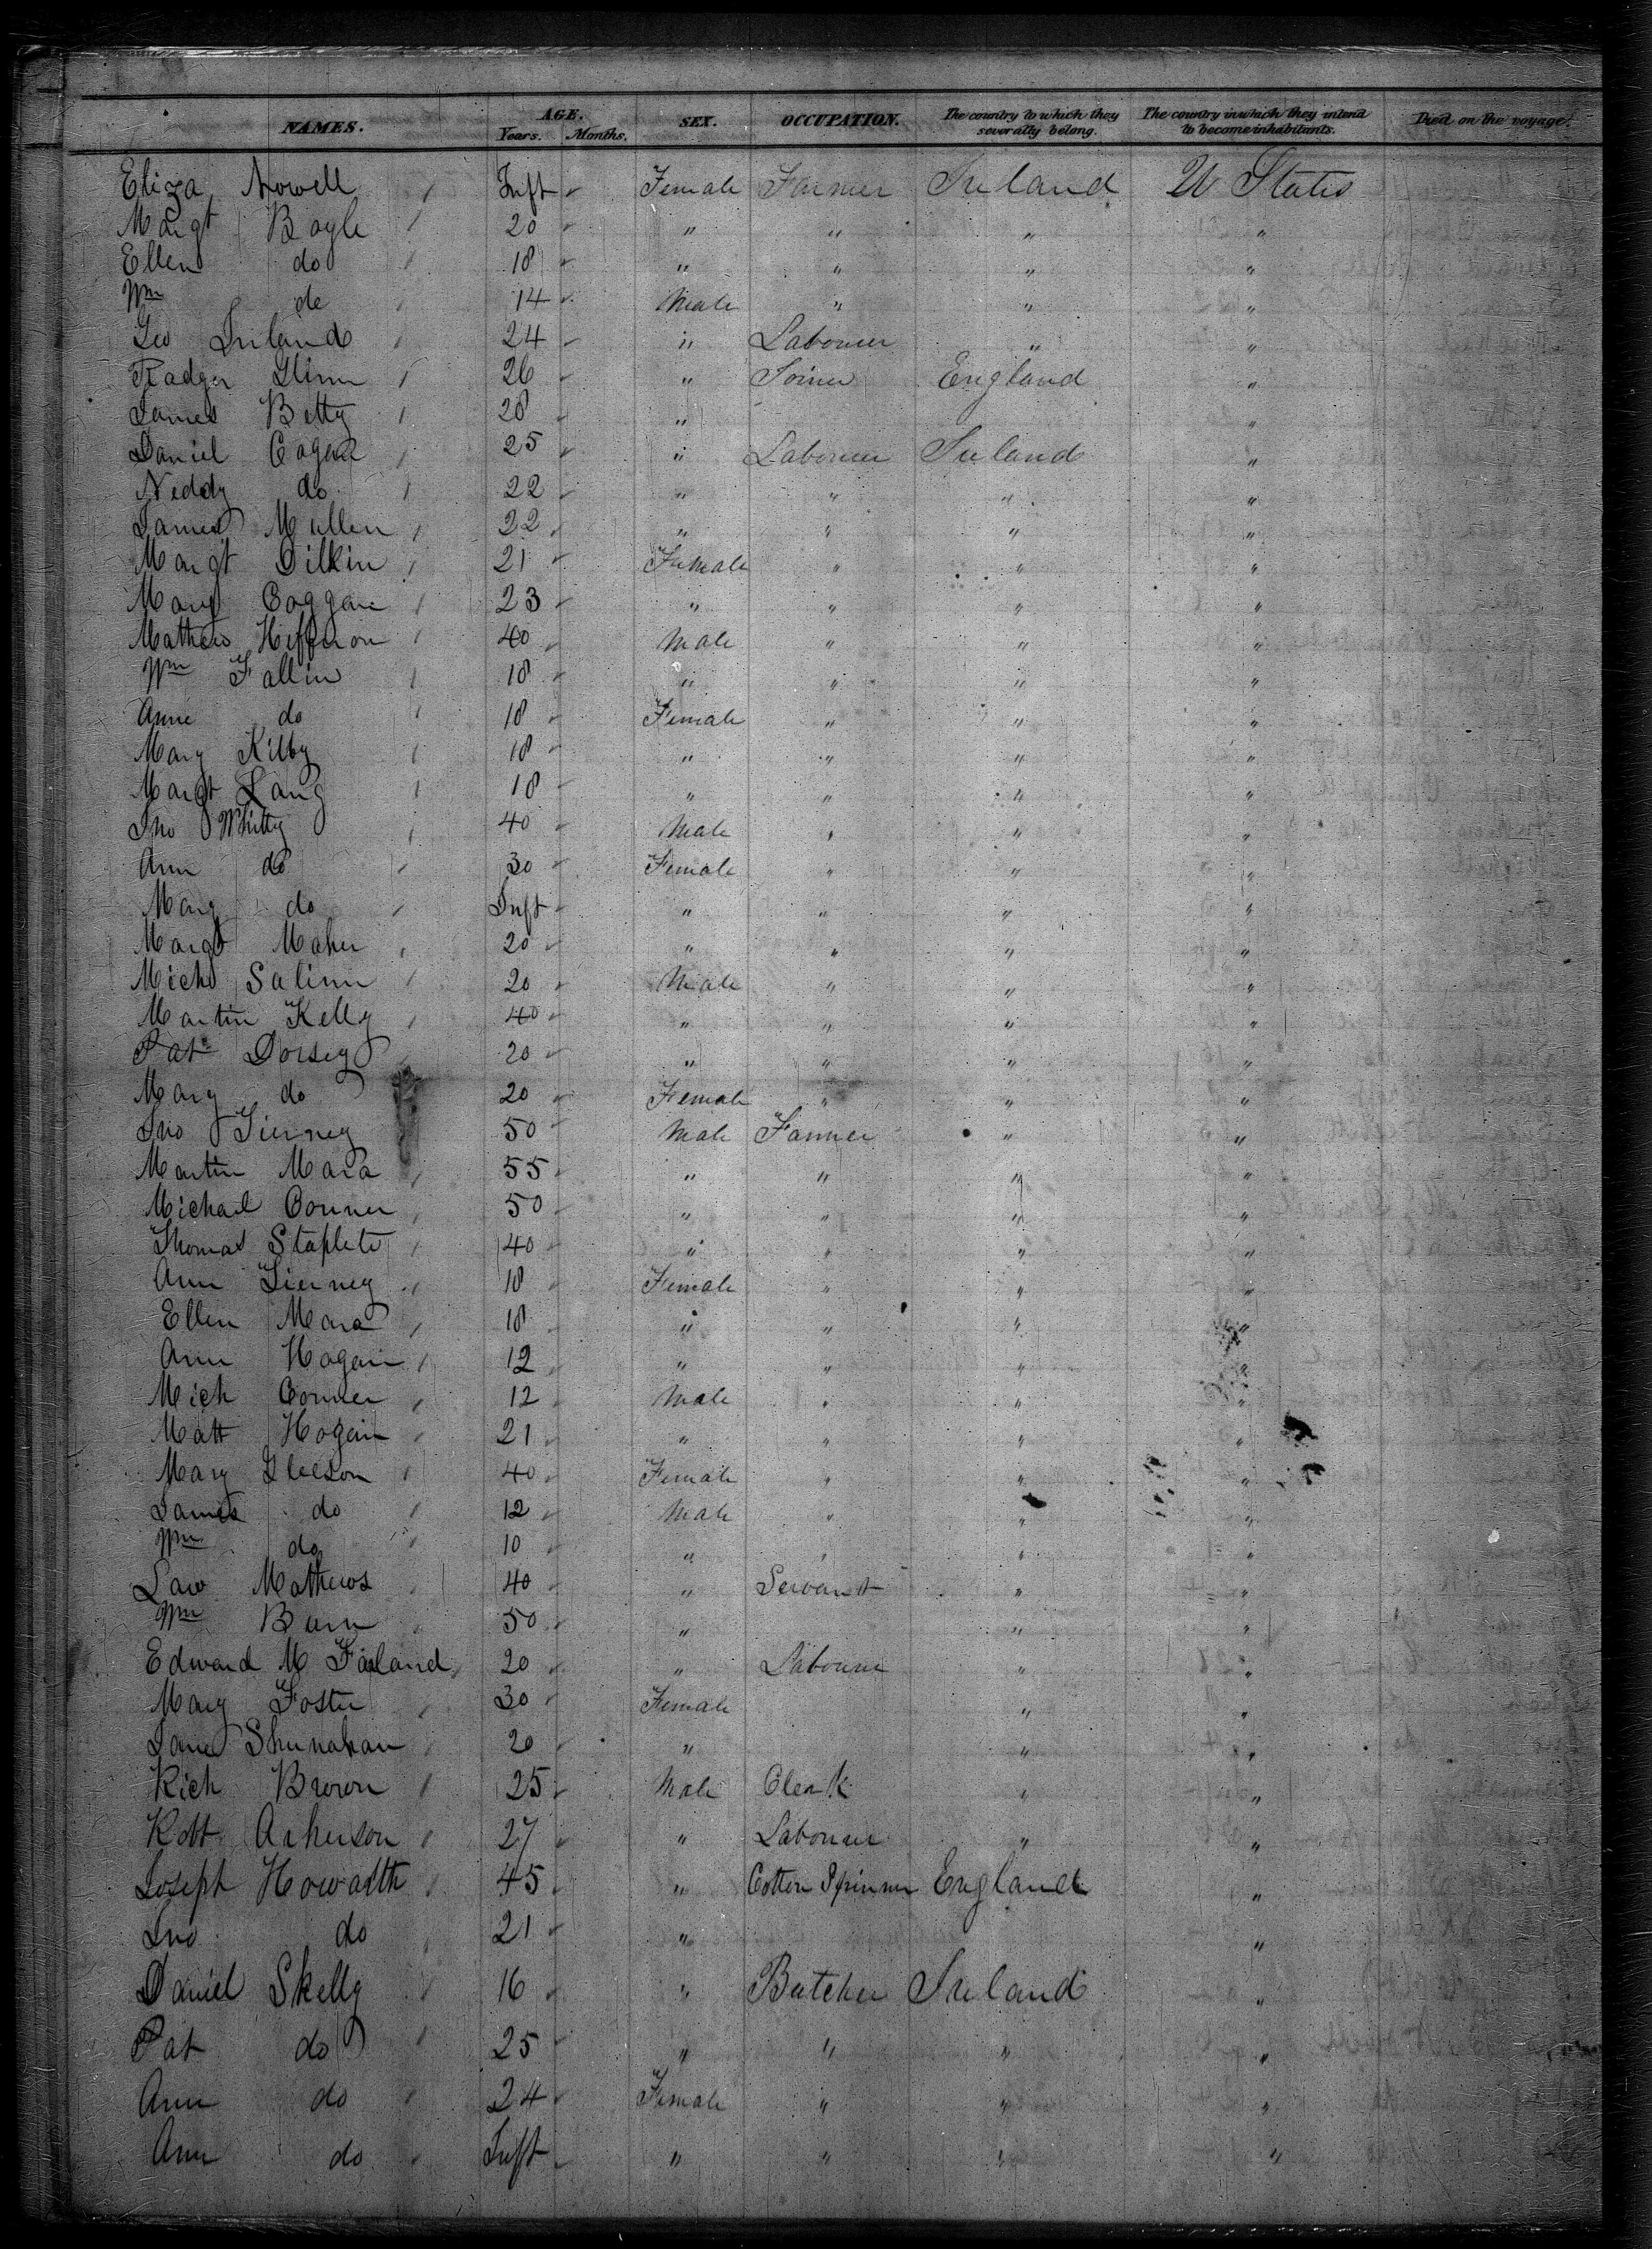 NAMES. AGE. Years. Months. SEX. OCCUPATION. The country to which they severally belong. The country in which they intend to become inhabitants. Died on the voyage.
Eliza Nowell Inft Female Farmer Ireland U States
Margt Boyle 20 " " " "
Ellen do 18 " " " "
Wm do 14 Male " " "
Geo Ireland 24 " Labourer " "
Rodger Glinn 26 " Joiner England "
James Betty 28 " "
Daniel Cogan 25 " Labourer Ireland "
Neddy do 22 " " " "
James Mullen 22 " " " "
Margt Dilkin 21 Female " " "
Mary Coggan 23 " " " "
Mathew Hefferon 40 Male " " "
Wm Fallin 18 " " " "
Anne do 18 Female " " "
Mary Kilby 18 " " " "
Margt Lang 18 " " " "
Jno Whitty 40 Male " " "
Ann do 30 Female " " "
Mary do Inft " " " "
Margt Maher 20 " " " "
Michl Salinn 20 Male " " "
Martin Kelly 40 " " " "
Pat Dorsey 20 " " " "
Mary do 20 Female " " "
Jno Tierney 50 Male Farmer " "
Martin Mara 55 " " " "
Michael Conner 50 " " " "
Thomas Staplete 40 " " " "
Ann Tierney 18 Female " " "
Ellen Mara 18 " " " "
Ann Hogan 12 " " " "
Mich Conner 12 Male " " "
Matt Hogan 21 " " " "
Mary Gleeson 40 Female " " "
James do 12 Male " " "
Wm do 10 " " " "
Law Mathews 40 " Servant " "
Wm Burn 50 " " "
Edward Mc Farland 20 " Labourer " "
Mary Foster 30 Female " "
Jane Shunahan 20 " " "
Rich Brown 25 Male Clerk " "
Robt Arkerson 27 " Labourer " "
Joseph Howarth 45 " Cotton Spinner England "
Jno do 21 " "
Daniel Skelly 16 " Butcher Ireland "
Pat do 25 " " " "
Ann do 24 Female " " "
Ann do Inft " " " "